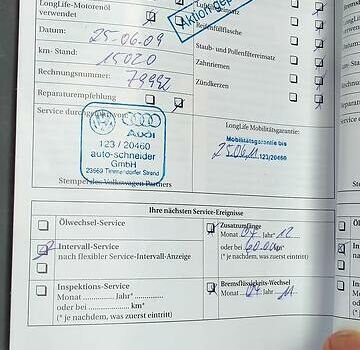 LongLife-Motorenöl
verwendet
Aktion
Datum:
25-06.09
Reifenfüllflasche
km- Stand:
15020
Staub- und Pollenfiltereinsatz
Zahnriemen
Rechnungsnummer:
79992
Zündkerzen
Reparaturempfehlung
Service durchgeführt von:
LongLife Mobilitätsgarantie:
Audi
123 / 20460
auto-schneider
GmbH
23569 Timmendorfer Strand
Mobilitätsgarantie bis
25.06.11 123/20460
Stempel des Volkswagen Partners
Ihre nächsten Service-Ereignisse
Ölwechsel-Service
Zusatzumfänge
Monat 04 Jahr* 12
Intervall-Service
nach flexibler Service-Intervall-Anzeige
oder bei 60.000 km*
(* je nachdem, was zuerst eintritt)
Inspektions-Service
Monat ............ Jahr* ............
oder bei .................. km*
(* je nachdem, was zuerst eintritt)
Bremsflüssigkeits-Wechsel
Monat 04 Jahr 11